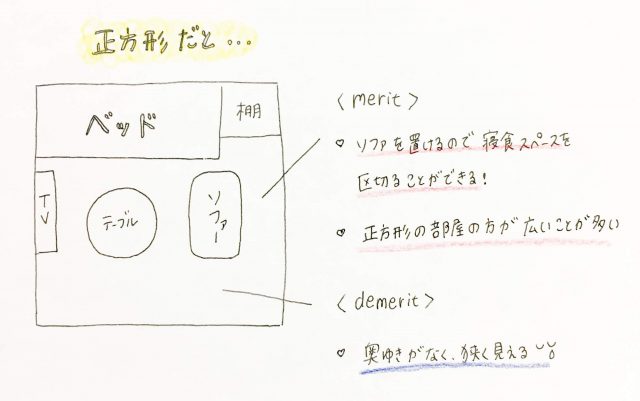 正方形だと…
ベッド
棚
TV
テーブル
ソファー
〈merit〉
♡ ソファを置けるので寝食スペースを
区切ることができる！
♡ 正方形の部屋の方が広いことが多い
〈demerit〉
♡ 奥ゆきがなく、狭く見える